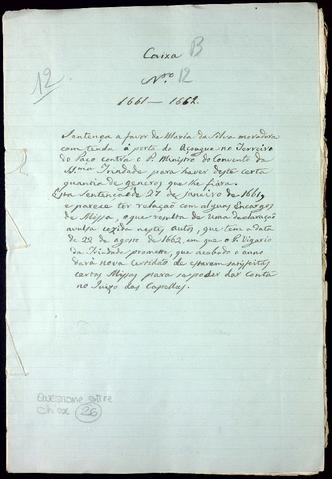 Caixa B
12
Nro 12
1661 — 1662.
Sentença a favor de Maria da Silva moradora
com tenda à porta do Açougue no Terreiro
do Paço contra o P. Ministro do Convento da
SSma Trindade para haver deste certa
quantia de generos que lhe fiára.
Esta Sentença é de 27 de Janeiro de 1661,
e parece ter relação com alguns Encargos
de Missa, o que resulta de uma declaração
avulsa cozida nestes autos, que tem a data
de 22 de agosto de 1662, em que o P. Vigario
da Trindade promette, que acabado o anno
dará nova certidão de estarem satisfeitas
certas Missas para se poder dar conta
no Juizo das Capellas.
26